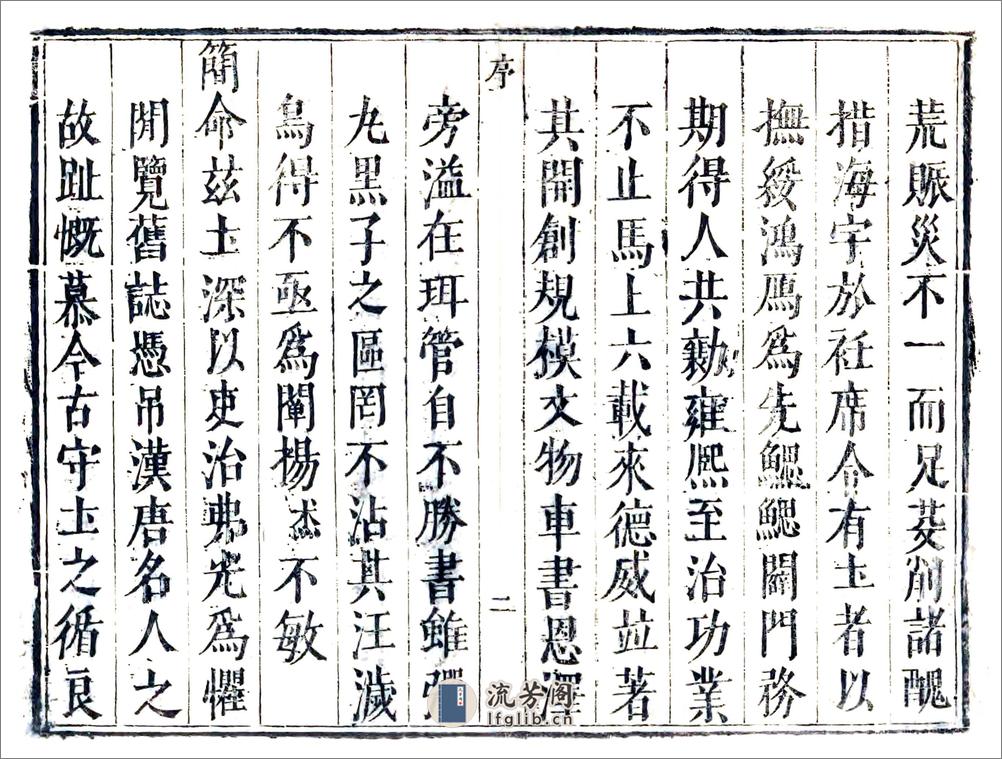 荒賑災不一而足芟削諸醜
措海宇於衽席令有士者以
撫綏鴻鴈爲先鰓鰓闢門務
期得人共勷雍熙至治功業
不止馬上六載來德威並著
其開創規模文物車書恩澤
序
二
旁溢在珥管自不勝書雖彈
丸黑子之區罔不沾其汪濊
烏得不亟爲闡揚杰不敏
簡命兹土深以吏治弗光爲懼
閒覽舊誌憑吊漢唐名人之
故趾慨慕今古守土之循良
流芳阁
lfglib.cn